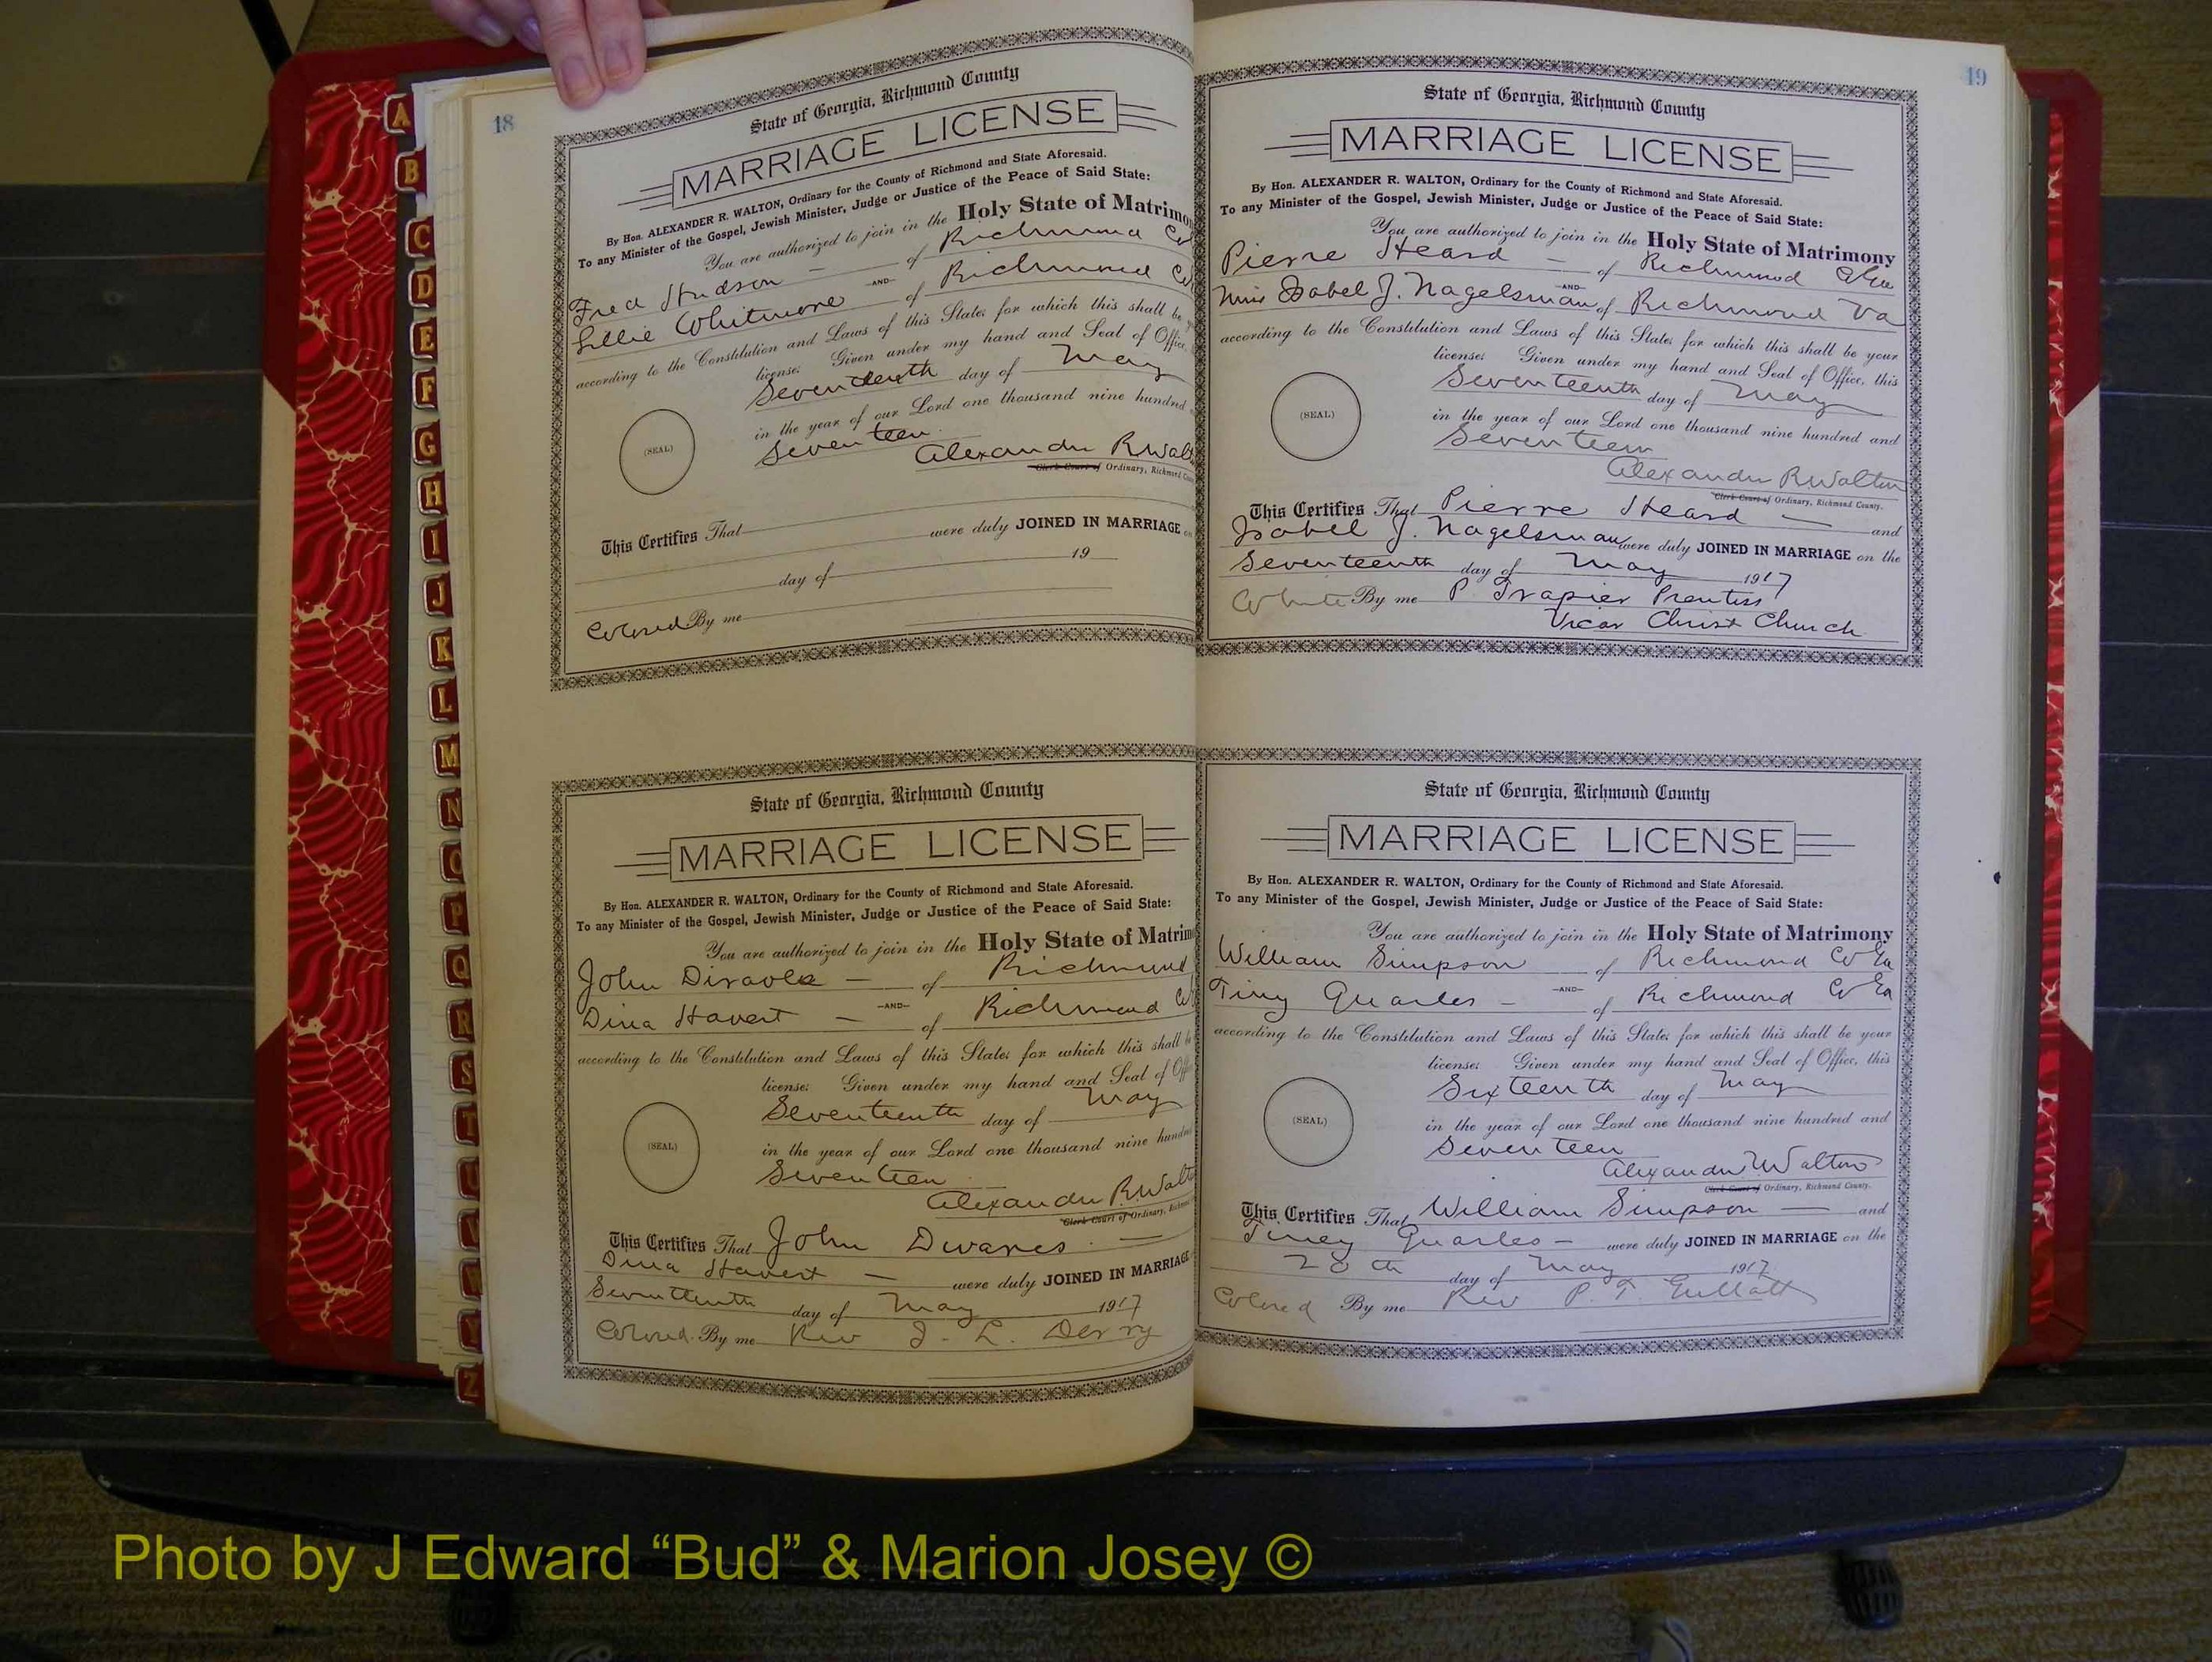 A
B
C
D
E
F
G
H
I
J
K
L
M
N
O
P
Q
R
S
T
U
V
W
Y
Z
18
State of Georgia, Richmond County
MARRIAGE LICENSE
By Hon. ALEXANDER R. WALTON, Ordinary for the County of Richmond and State Aforesaid.
To any Minister of the Gospel, Jewish Minister, Judge or Justice of the Peace of Said State:
You are authorized to join in the Holy State of Matrimo
Fred Hudson — of Richmond Co
—AND—
Lillie Whitmore of Richmond Co
according to the Constitution and Laws of this State; for which this shall be
license: Given under my hand and Seal of Office,
Seventeenth day of May
in the year of our Lord one thousand nine hundred
Seventeen
Alexander R Walt
Clerk Court of Ordinary, Richmond
(SEAL)
This Certifies That
were duly JOINED IN MARRIAGE on
day of 19
Colored By me
State of Georgia, Richmond County
MARRIAGE LICENSE
By Hon. ALEXANDER R. WALTON, Ordinary for the County of Richmond and State Aforesaid.
To any Minister of the Gospel, Jewish Minister, Judge or Justice of the Peace of Said State:
You are authorized to join in the Holy State of Matrim
John — of Richmond
—AND—
Dina Havert — of Richmond Co
according to the Constitution and Laws of this State; for which this shall be
license: Given under my hand and Seal of Offi
Seventeenth day of May
in the year of our Lord one thousand nine hundred
Seventeen
Alexander R Walt
Clerk Court of Ordinary, Richmond
(SEAL)
This Certifies That John —
Dina Havert — were duly JOINED IN MARRIAGE
Seventeenth day of May 1917
Colored By me Rev J. L. Derry
19
State of Georgia, Richmond County
MARRIAGE LICENSE
By Hon. ALEXANDER R. WALTON, Ordinary for the County of Richmond and State Aforesaid.
To any Minister of the Gospel, Jewish Minister, Judge or Justice of the Peace of Said State:
You are authorized to join in the Holy State of Matrimony
Pierre Heard — of Richmond
—AND—
Miss Isabel J. Nagelsman of Richmond Va
according to the Constitution and Laws of this State; for which this shall be your
license: Given under my hand and Seal of Office, this
Seventeenth day of May
in the year of our Lord one thousand nine hundred and
Seventeen
Alexander R Walton
Clerk Court of Ordinary, Richmond County.
(SEAL)
This Certifies That Pierre Heard — and
Isabel J. Nagelsman were duly JOINED IN MARRIAGE on the
Seventeenth day of May 1917
White By me P. Trapier Prentiss
Vicar Christ Church
State of Georgia, Richmond County
MARRIAGE LICENSE
By Hon. ALEXANDER R. WALTON, Ordinary for the County of Richmond and State Aforesaid.
To any Minister of the Gospel, Jewish Minister, Judge or Justice of the Peace of Said State:
You are authorized to join in the Holy State of Matrimony
William Simpson of Richmond Co Ga
—AND—
Tiny Quarles – of Richmond Co Ga
according to the Constitution and Laws of this State; for which this shall be your
license: Given under my hand and Seal of Office, this
Sixteenth day of May
in the year of our Lord one thousand nine hundred and
Seventeen
Alexander Walton
Clerk Court of Ordinary, Richmond County.
(SEAL)
This Certifies That William Simpson — and
Tiney Quarles – were duly JOINED IN MARRIAGE on the
28th day of May 1917
Colored By me Rev P. T.
Photo by J Edward “Bud” & Marion Josey ©